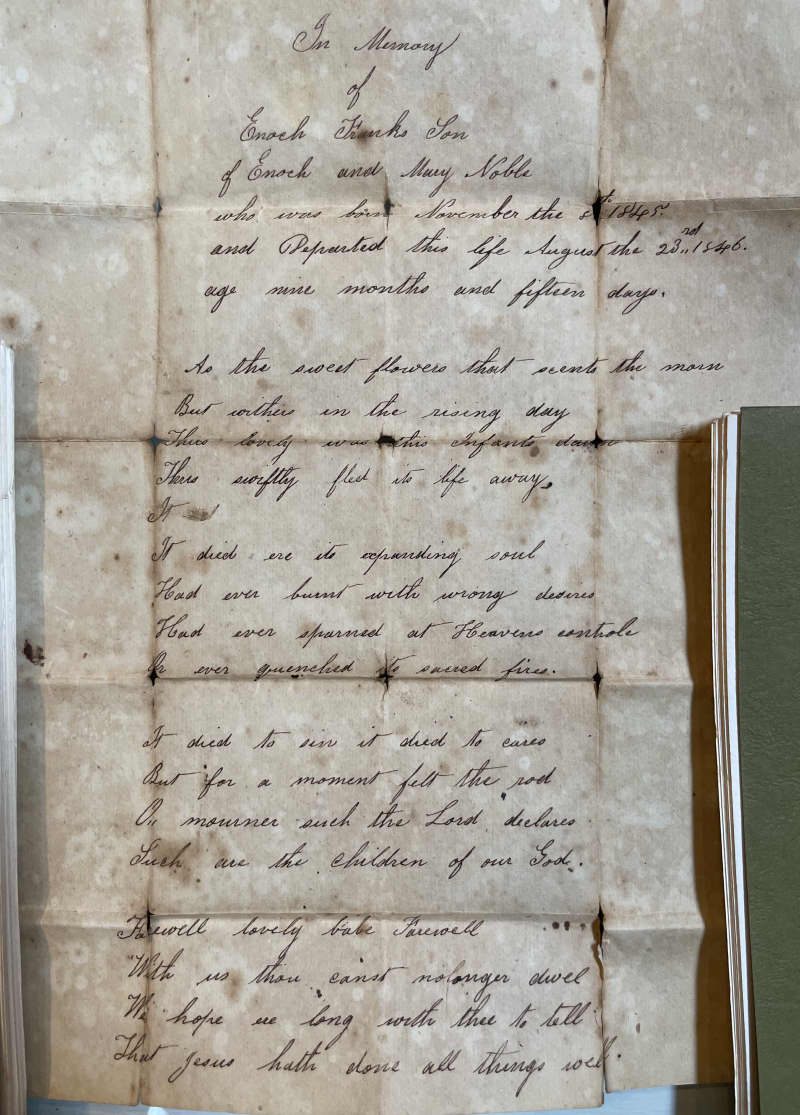 In Memory
of
Enoch Franks Son
of Enoch and Mary Noble
who was born November the 8th 1845.
and Departed this life August the 23rd 1846.
age nine months and fifteen days.
As the sweet flowers that scents the morn
But withers in the rising day
Thus lovely was this Infants dawn
Thus swiftly fled its life away,
It
It died ere its expanding soul
Had ever burnt with wrong desires
Had ever sparned at Heavens controle
Or ever quenched its sacred fires.
It died to sin it died to cares
But for a moment felt the rod
O,, mourner such the Lord declares
Such are the children of our God.
Farewell lovely babe Farewell
With us thou canst nolonger dwel
We hope ere long with thee to tell
That Jesus hath done all things well.